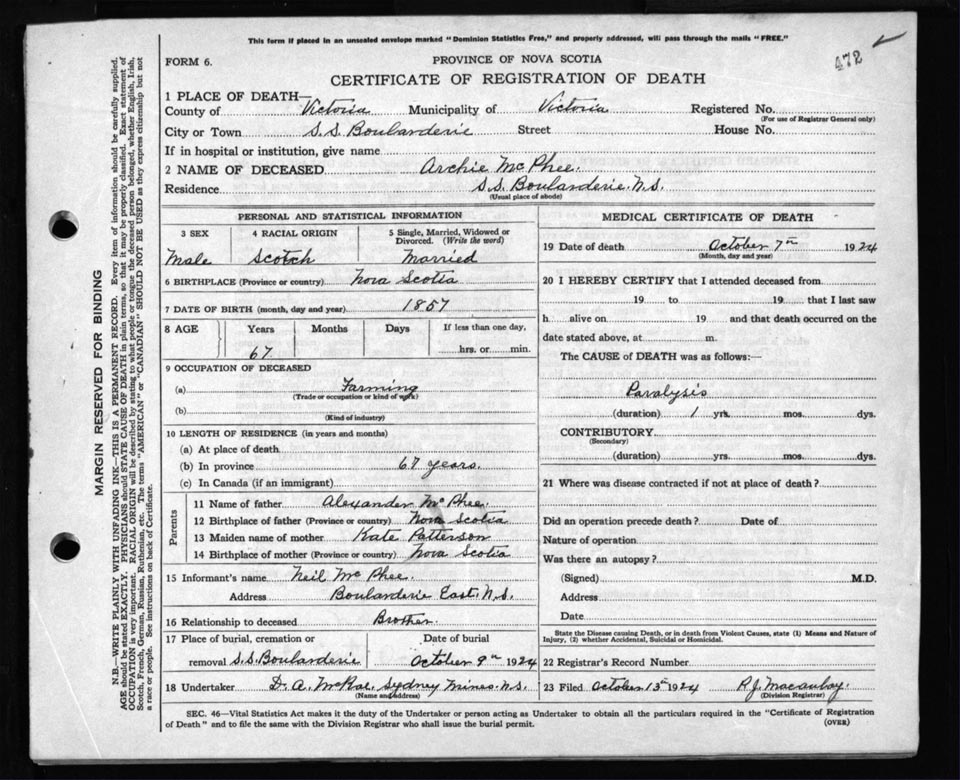 This form if placed in an unsealed envelope marked "Dominion Statistics Free," and properly addressed, will pass through the mails "FREE."
472
FORM 6.
PROVINCE OF NOVA SCOTIA
CERTIFICATE OF REGISTRATION OF DEATH
1 PLACE OF DEATH—
County of Victoria Municipality of Victoria Registered No.
(For use of Registrar General only)
City or Town S.S. Boularderie Street House No.
If in hospital or institution, give name
2 NAME OF DECEASED Archie McPhee.
Residence S.S. Boularderie. N.S.
(Usual place of abode)
PERSONAL AND STATISTICAL INFORMATION
3 SEX 4 RACIAL ORIGIN 5 Single, Married, Widowed or Divorced. (Write the word)
Male Scotch Married
6 BIRTHPLACE (Province or country) Nova Scotia
7 DATE OF BIRTH (month, day and year) 1857
8 AGE Years Months Days If less than one day,
67 hrs. or min.
9 OCCUPATION OF DECEASED
(a) Farming
(Trade or occupation or kind of work)
(b)
(Kind of industry)
10 LENGTH OF RESIDENCE (in years and months)
(a) At place of death
(b) In province 67 years.
(c) In Canada (if an immigrant)
Parents
11 Name of father Alexander McPhee.
12 Birthplace of father (Province or country) Nova Scotia
13 Maiden name of mother Kate Patterson
14 Birthplace of mother (Province or country) Nova Scotia
15 Informant's name Neil McPhee.
Address Boularderie East. N.S.
16 Relationship to deceased Brother.
17 Place of burial, cremation or Date of burial
removal S.S. Boularderie October 9th 1924
18 Undertaker D. A. McRae. Sydney Mines. N.S.
(Name and address)
MEDICAL CERTIFICATE OF DEATH
19 Date of death October 7th 1924
(Month, day and year)
20 I HEREBY CERTIFY that I attended deceased from
19 to 19 that I last saw
h alive on 19 and that death occurred on the
date stated above, at m.
The CAUSE of DEATH was as follows:—
Paralysis
(duration) 1 yrs. mos. dys.
CONTRIBUTORY
(Secondary)
(duration) yrs. mos. dys.
21 Where was disease contracted if not at place of death?
Did an operation precede death? Date of
Nature of operation
Was there an autopsy?
(Signed) M.D.
Address
Date
State the Disease causing Death, or in death from Violent Causes, state (1) Means and Nature of
Injury, (2) whether Accidental, Suicidal or Homicidal.
22 Registrar's Record Number
23 Filed October 13th 1924 R.J. Macaulay.
(Division Registrar)
SEC. 46—Vital Statistics Act makes it the duty of the Undertaker or person acting as Undertaker to obtain all the particulars required in the "Certificate of Registration
of Death" and to file the same with the Division Registrar who shall issue the burial permit.
(OVER)
MARGIN RESERVED FOR BINDING
N.B.—WRITE PLAINLY WITH UNFADING INK—THIS IS A PERMANENT RECORD. Every item of information should be carefully supplied.
AGE should be stated EXACTLY. PHYSICIANS should STATE CAUSE OF DEATH in plain terms, so that it may be properly classified. Exact statement of
OCCUPATION is very important. RACIAL ORIGIN will be described by stating to what people or tongue the deceased person belonged, whether English, Irish,
Scotch, French, German, Russian, Ruthenian, etc. The terms "AMERICAN" or "CANADIAN" SHOULD NOT BE USED as they express citizenship but not
a race or people. See instructions on back of Certificate.